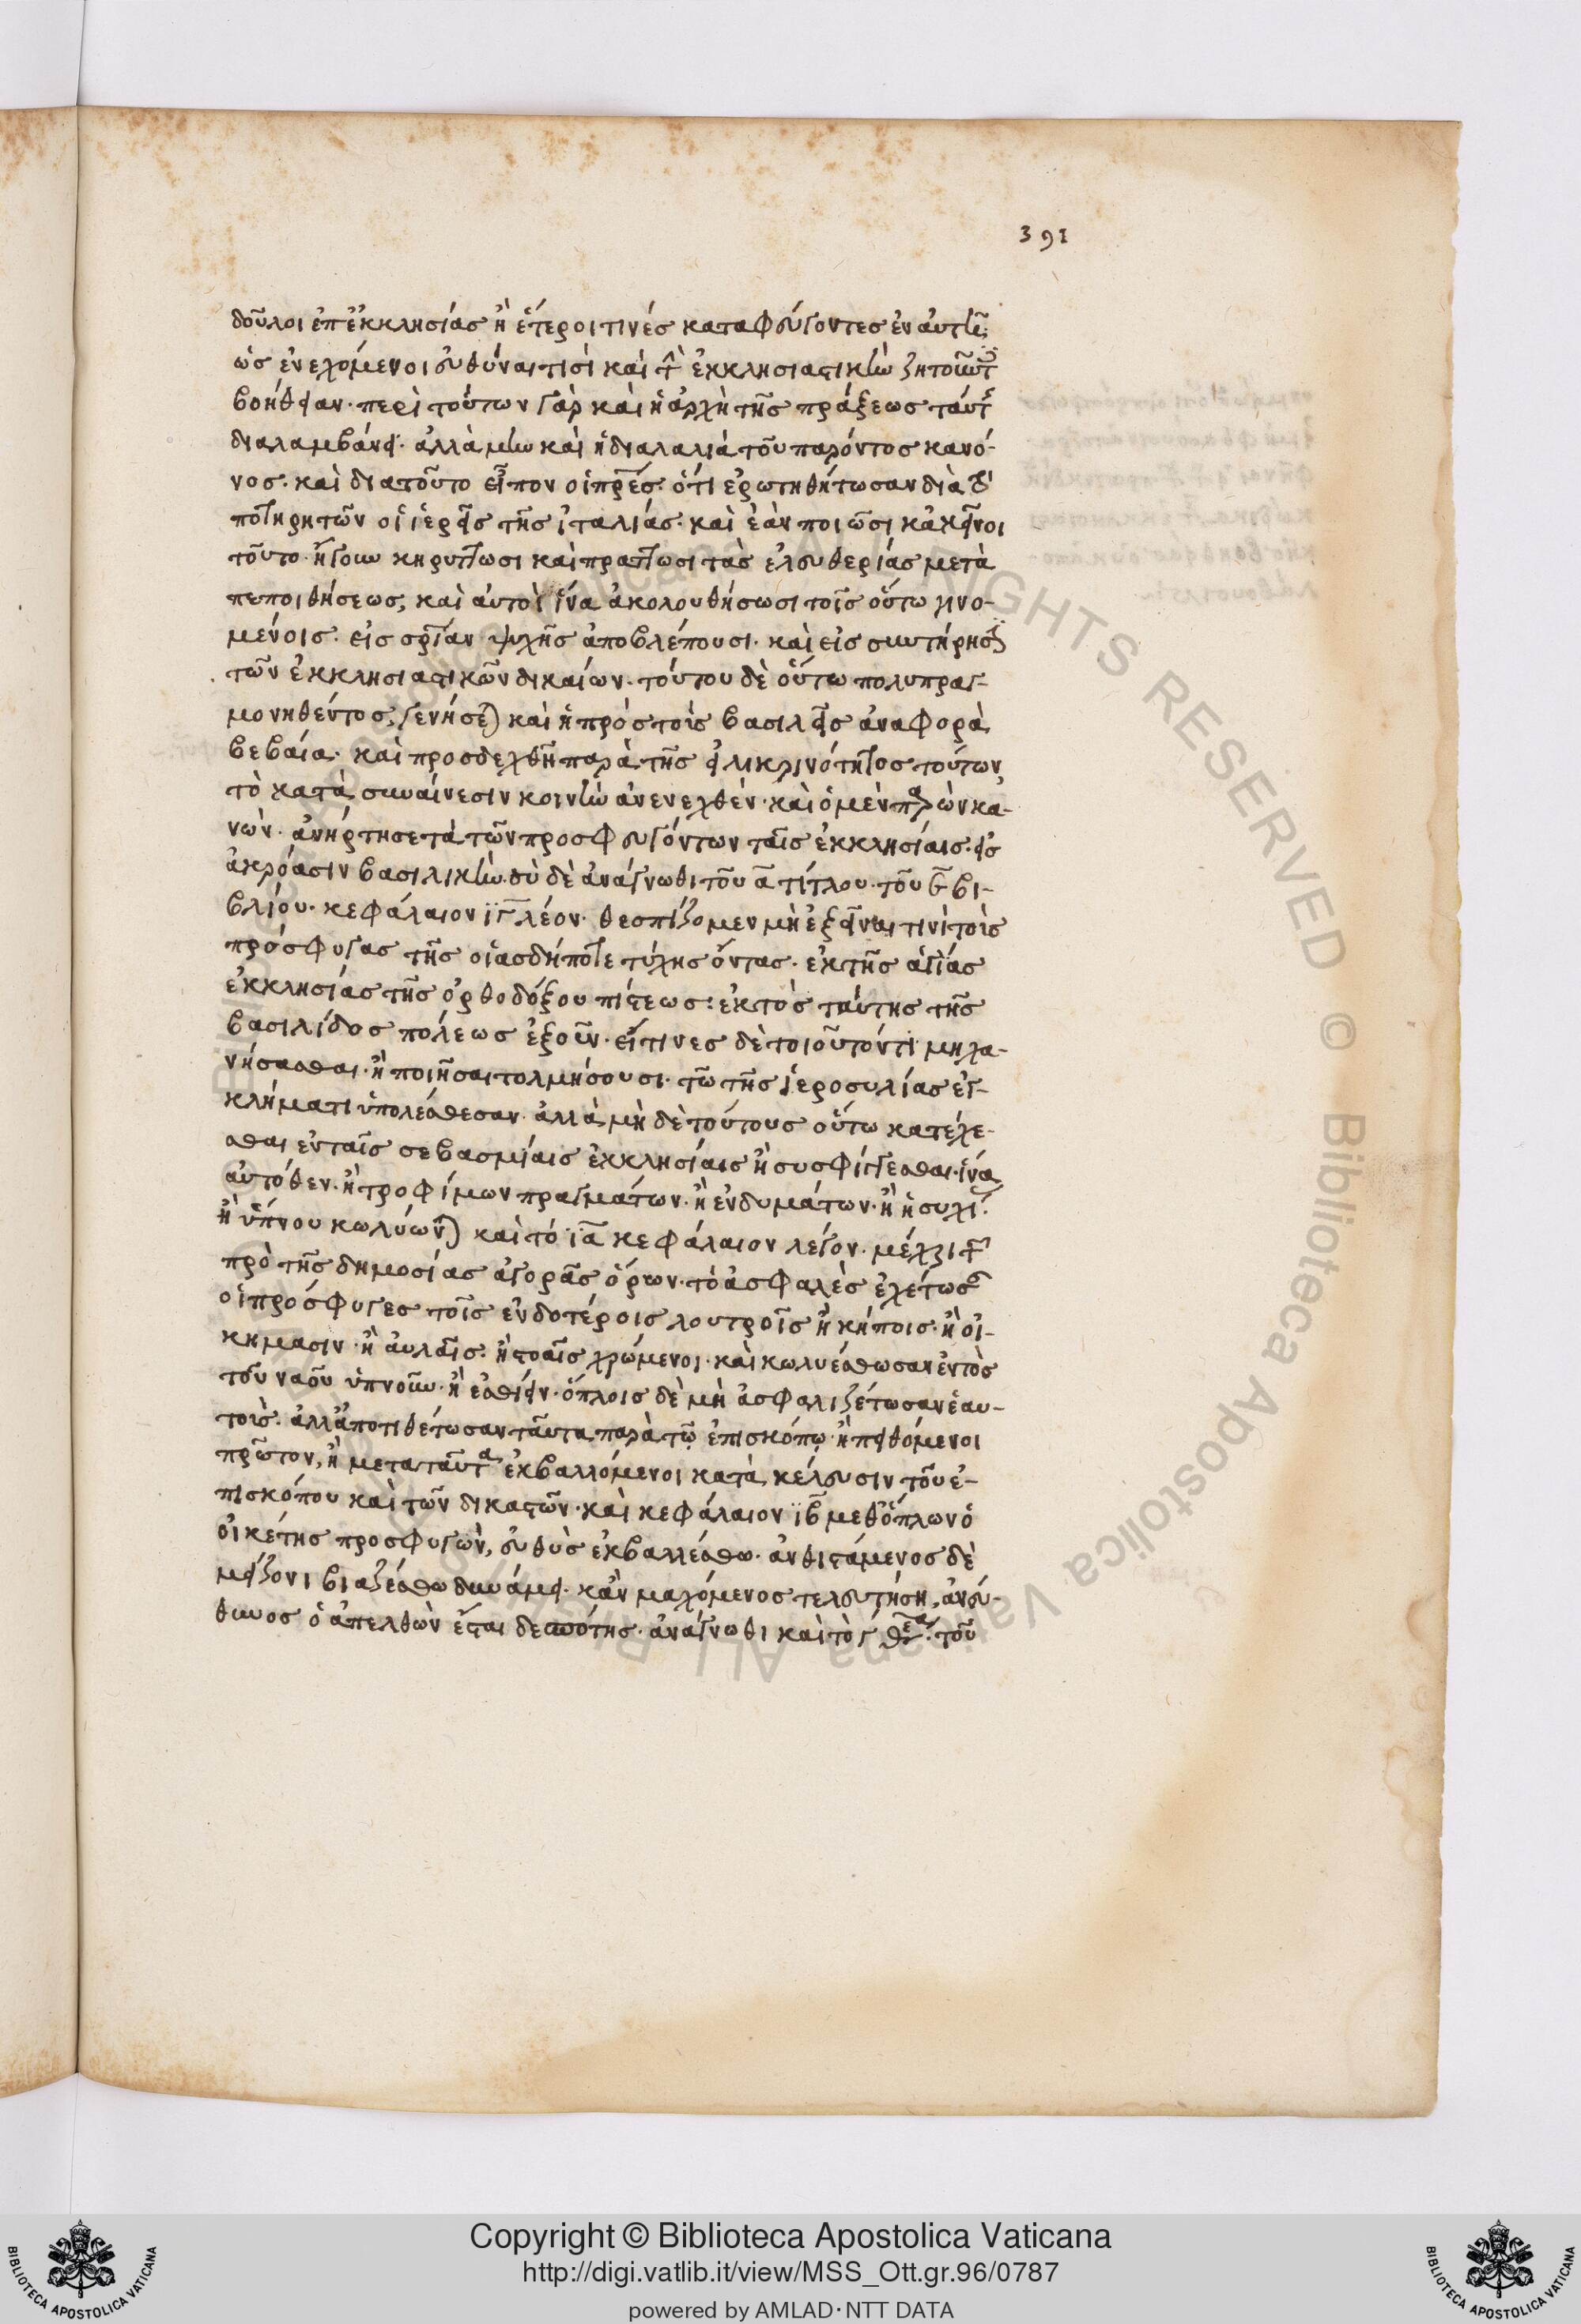 391
δοῦλοι ἐπ ἐκκλησίας ἢ ἕτεροι τινές καταφυγόντες ἐν αὐτῆ·
ὡς ἐνεχόμενοι εὐθύναι τισὶ καὶ τ̀ ἐκκλησιαστικὴν ζητοῦντ
βοήθειαν· περὶ τούτων γὰρ καὶ ἡ ἀρχὴ τῆς πράξεως ταύτ
διαλαμβάνει· ἀλλὰ μὴν καὶ ἡ διαλαλιὰ τοῦ παρόντος κανό-
νος· καὶ διατοῦτο εἶπον οἱ πρές· ὅτι ἐρωτηθήτωσαν διὰ
ποτηρητῶν οἱ ἱερεῖς τῆς ἰταλίας· καὶ ἐὰν ποιῶσι κἀκεῖνοι
τοῦτο· ἤγουν κηρυττωσι καὶ πραττωσι τὰς ἐλευθερίας μετὰ
πεποιθήσεως, καὶ αὐτοὶ ἵνα ἀκολουθήσωσι τοῖς οὕτω γινο-
μένοις· εἰς σρίαν ψυχῆς ἀποβλέπουσι· καὶ εἰς συντήρησ
τῶν ἐκκλησιαστικῶν δικαίων· τούτου δὲ οὕτω πολυπραγ-
μονηθέντος, γενήσε) καὶ ἡ πρὸς τοὺς βασιλεῖς ἀναφορὰ
βεβαία· καὶ προσδεχθῆ παρὰ τῆς εἰλικρινότητος τούτων
τὸ κατὰ συναίνεσιν κοινὴν ἀνενεχθέν· καὶ ὁ μὲν παρὼν κα-
νὼν· ἀνήρτησε τὰ τῶν προσφυγόντων ταῖς ἐκκλησίαις· εἰς
ἀκρόασιν βασιλικὴν· σὺ δὲ ἀνάγνωθι τοῦ α τίτλου· τοῦ ε βι-
βλίου· κεφάλαιον ϊγ λέον· θεσπίζομεν μὴ ἐξεῖναι τινὶ τοὺς
πρόσφυγας τῆς οἱασδήποτε τύχης ὄντας· ἐκ τῆς ἁγίας
ἐκκλησίας τῆς ὀρθοδόξου πίστεως· ἐκτὸς ταύτης τῆς
βασιλίδος πόλεως ἐξοῦν· εἴ τινες δὲ τοιοῦτόν τι μηχα-
νήσασθαι· ἢ ποιῆσαι τολμήσουσι· τῶ τῆς ἱεροσυλίας ἐγ-
κλήματι ὑπολέσθεσαν· ἀλλὰ μὴ δὲ τούτους οὕτω κατέχε-
σθαι ἐν ταῖς σεβασμίαις ἐκκλησίαις ἢ συσφίγγεσθαι· ἵνα
αὐτόθεν· ἢ τροφίμων πραγμάτων· ἢ ἐνδυμάτων· ἢ ἡσυχί·
ἢ ὕπνου κωλύων) καὶ τό ϊα κεφάλαιον λέγον· μέχρι τ
πρὸ τῆς δημοσίας ἀγορᾶς ὅρων· τὸ ἀσφαλὲς ἐχέτωσ
οἱ πρόσφυγες τοῖς ἐνδοτέροις λουτροῖς ἢ κήποις· ἢ οἰ-
κήμασιν· ἢ αὐλαῖς· ἢ στοαῖς χρώμενοι· καὶ κωλυέσθωσαν ἐντὸς
τοῦ ναοῦ ὑπνοῦν· ἢ ἐσθίειν· ὅπλοις δὲ μὴ ἀσφαλιζέτωσαν ἑαυ-
τούς· ἀλλ ἀποτιθέτωσαν ταῦτα παρὰ τῷ ἐπισκόπῳ· ἢ πειθόμενοι
πρῶτον, ἢ μετα ταῦτα ἐκβαλλόμενοι κατὰ κέλευσιν τοῦ ἐ-
πισκόπου καὶ τῶν δικαστῶν· καὶ κεφάλαιον ϊβ μεθ ὅπλων ὁ
οἰκέτης προσφυγὼν, εὐθὺς ἐκβαλλέσθω· ἀνθιστάμενος δὲ
μείζονι βιαζέσθω δυνάμει· κἂν μαχόμενος τελευτήση, ἀνεύ-
θυνος ὁ ἀπελθὼν ἔσται δεσπότης· ἀνάγνωθι καὶ τὸ τοῦ